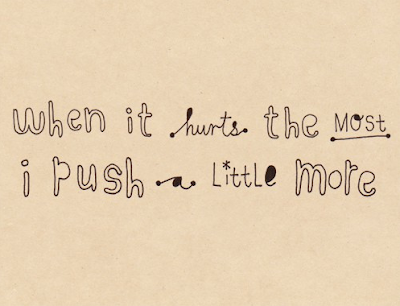 when it hurts the Most
i push a Little more